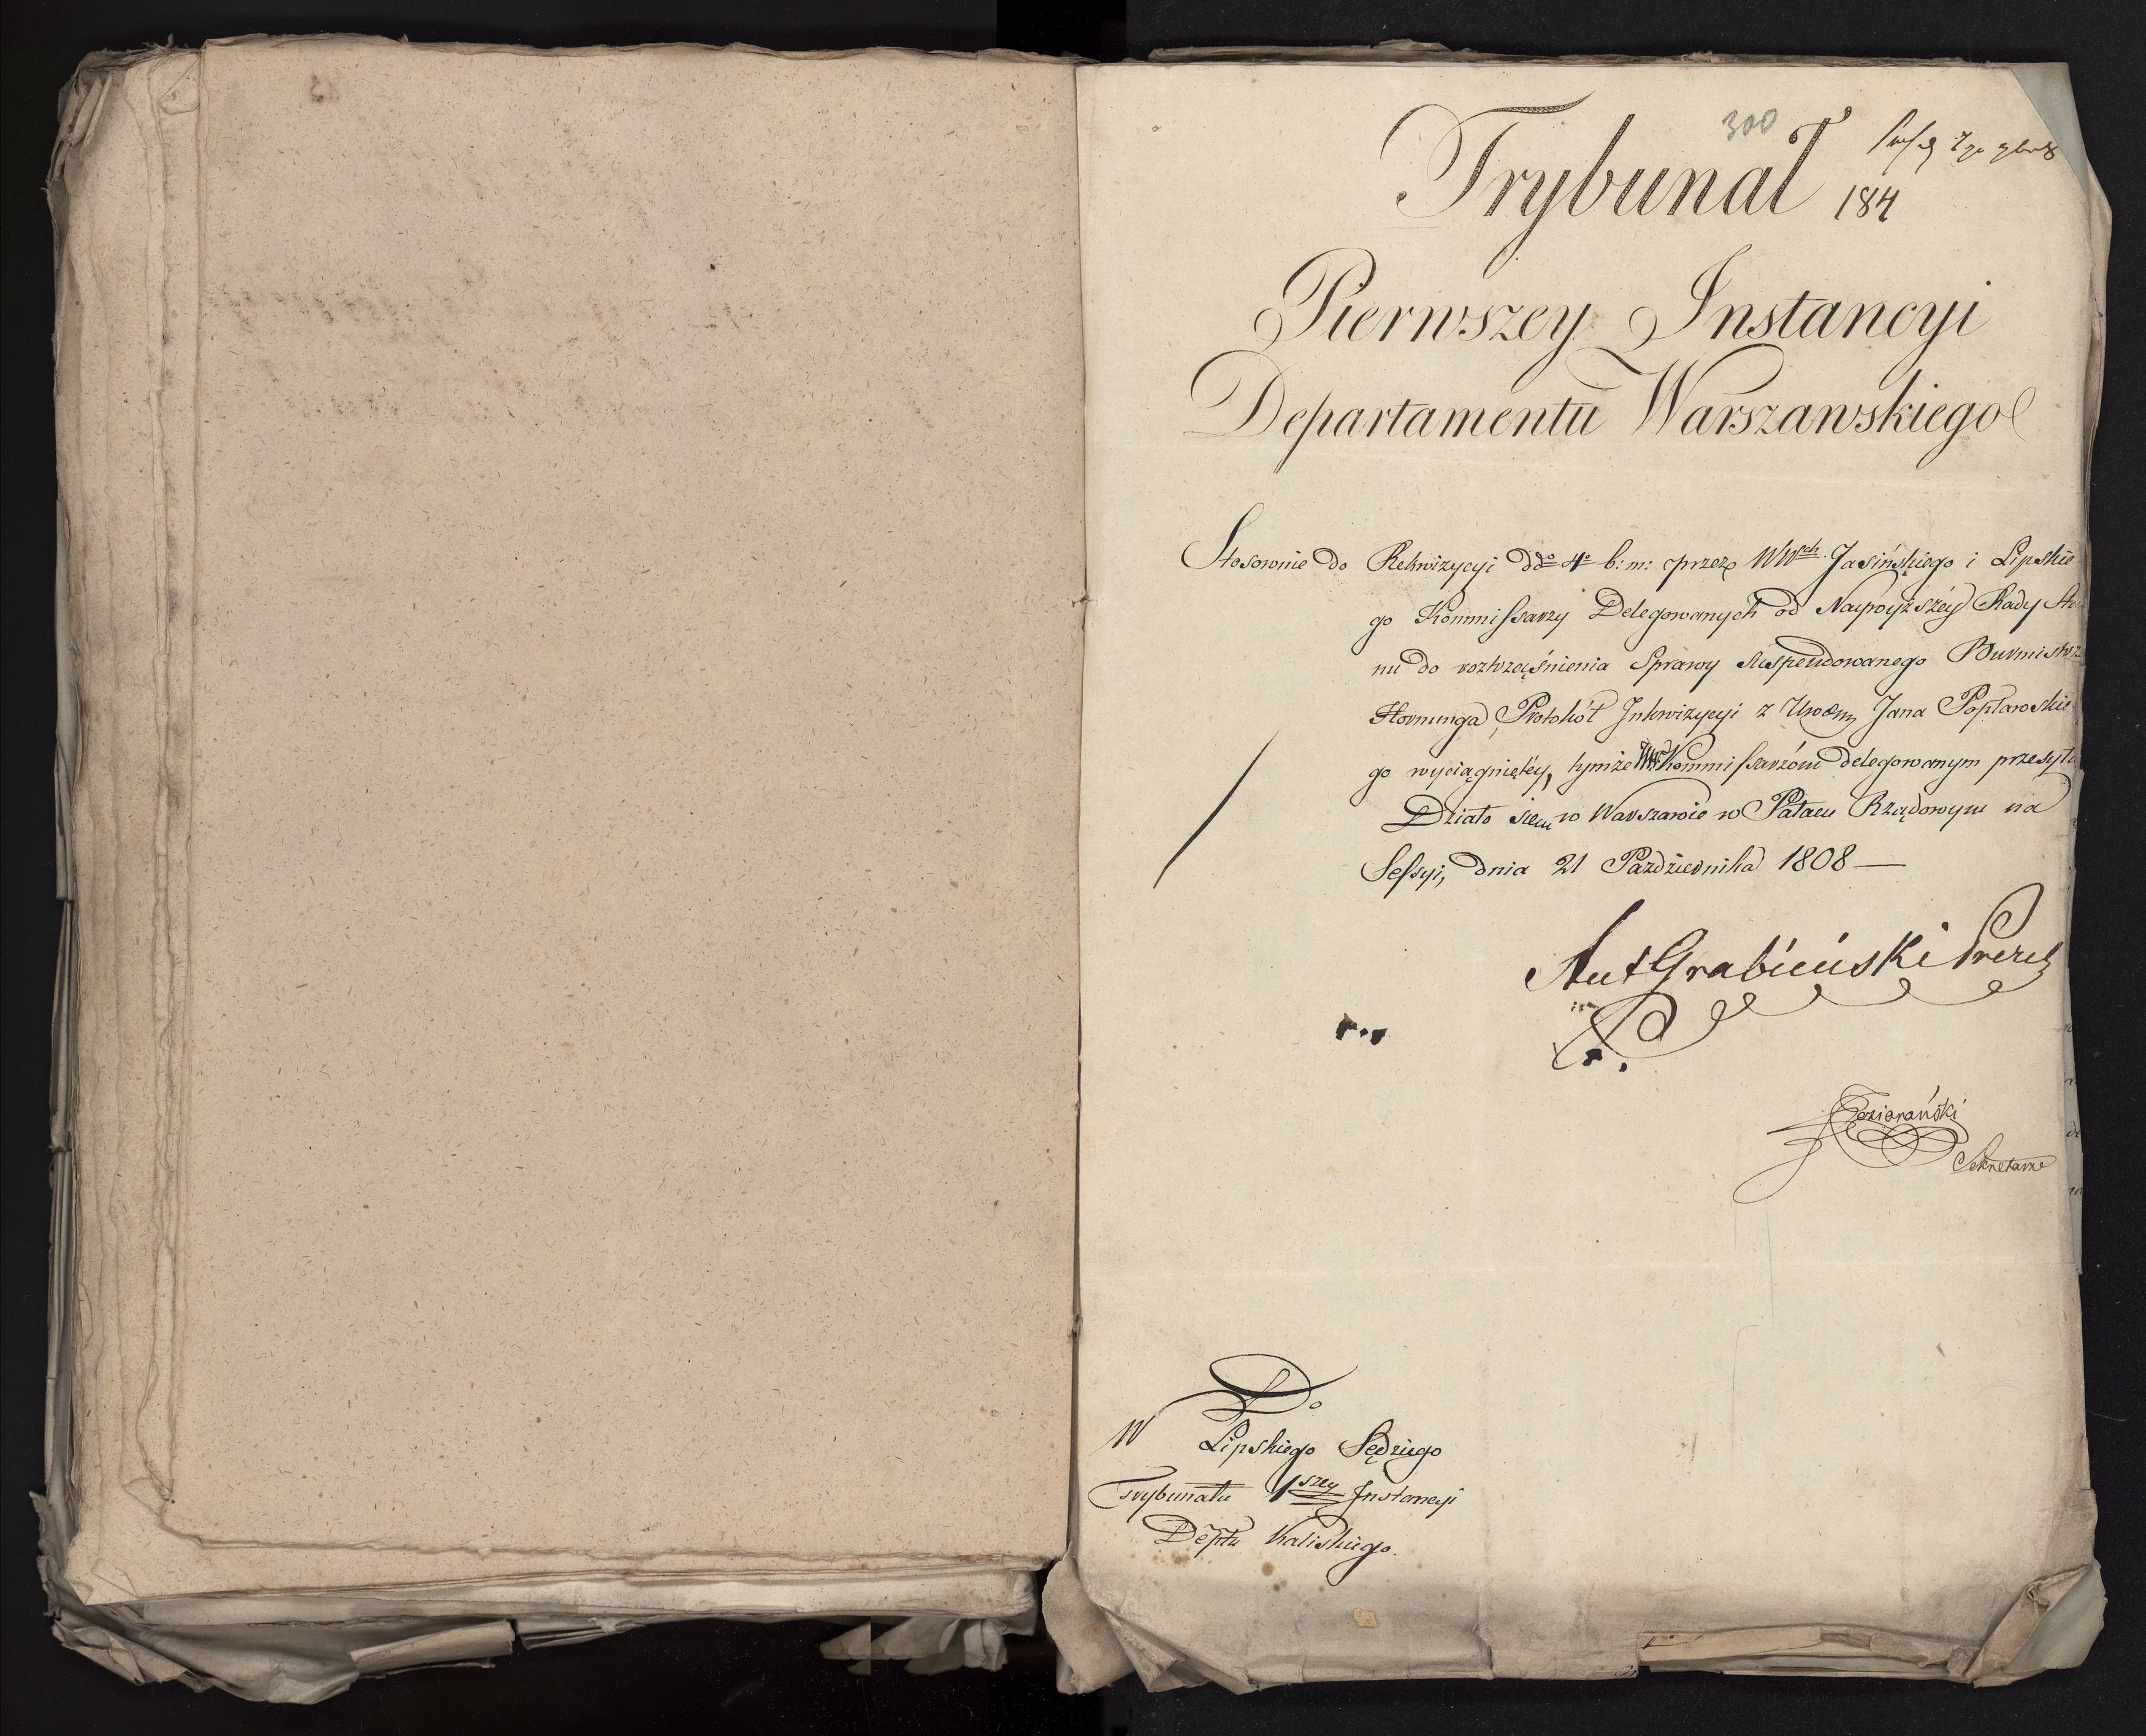 300
Trybunał
184
Pierwszey Instancyi
Departamentu Warszawskiego
Stosownie do Rekwizycyi ddo 4o b: m: przez WWch Jasińskiego i Lipskie
go Kommissarzy Delegowanych od Naywyższéy Rady Sta
nu do roztrząśnienia Sprawy suspendowanego Burmistrza
Hornunga, Protokół Inkwizycyi z Urodzo Jana Popławskie
go wyciągniętéy, tymże WW Kommissarzóm delegowanym przesyła
Działo się w Warszawie w Pałacu Rządowym na
Sessyi, dnia 21 Pazdziernika 1808 —
Ant Grabieński Prezes
Sekretarz
Do
W Lipskiego Sędziego
Trybunału 1szey Instancyi
Deptu Kaliskiego.